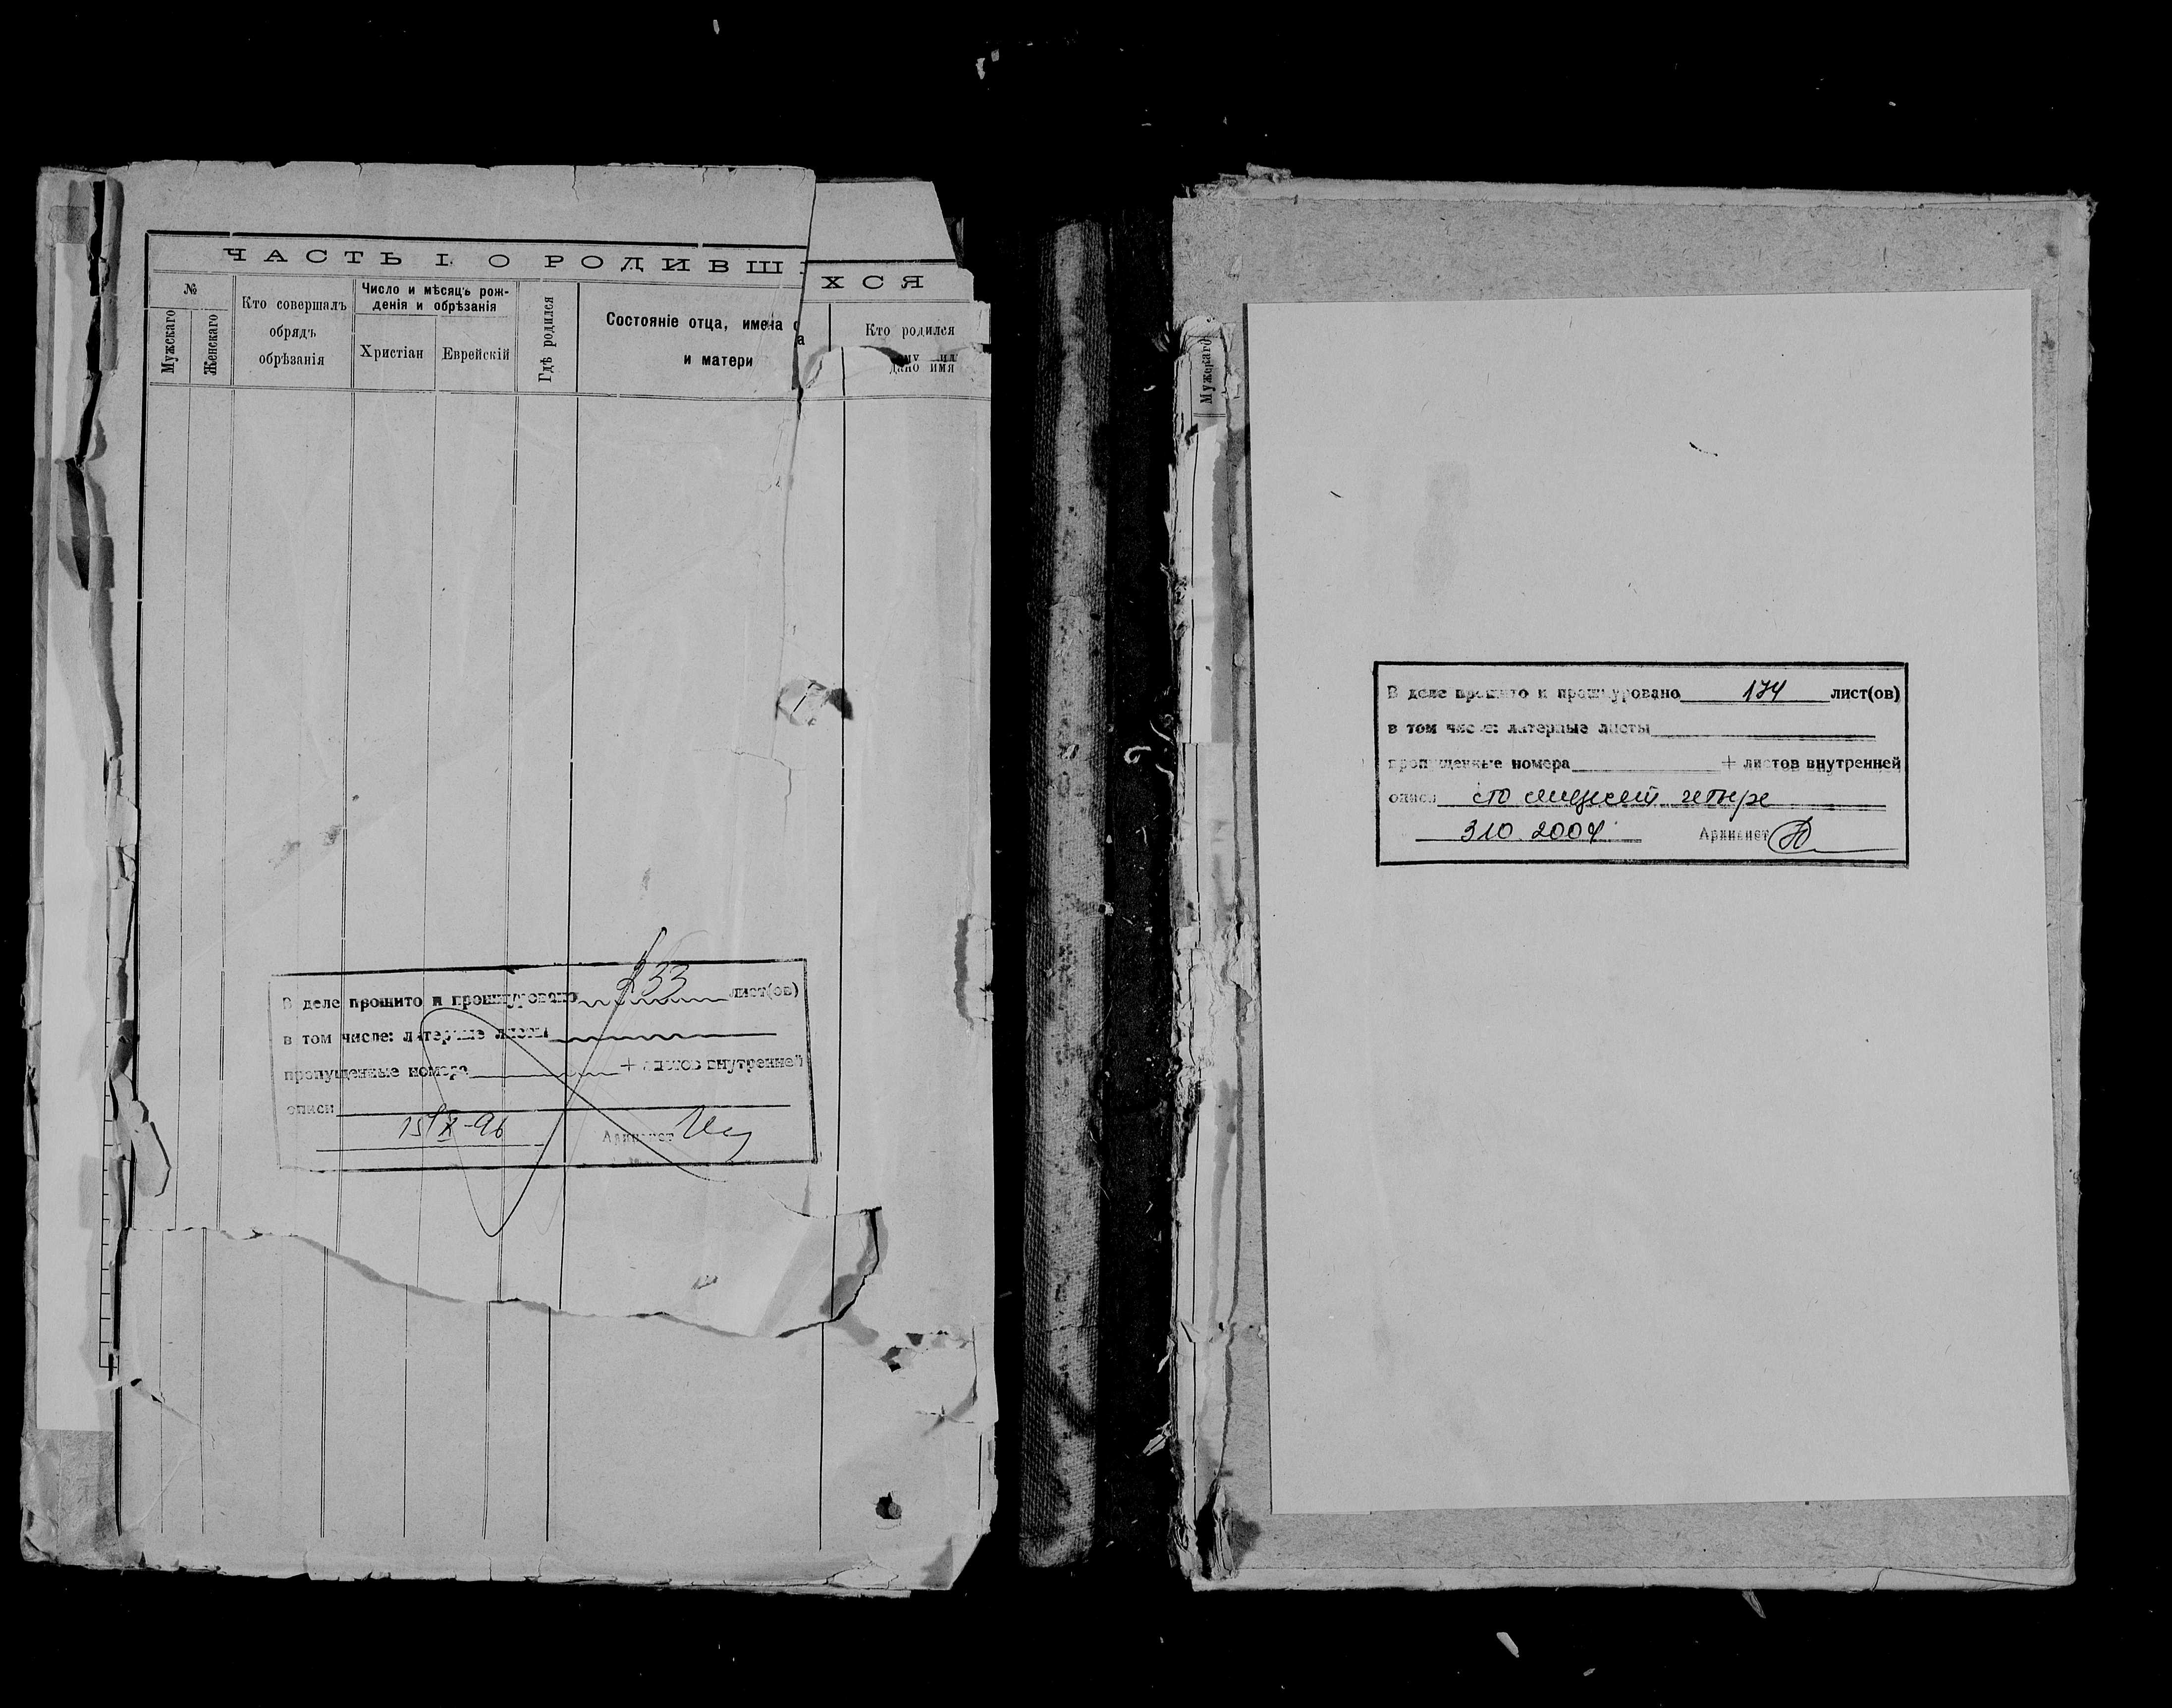 ЧАСТЬ I. О РОДИВШ ХСЯ
№
Мужскаго
Женскаго
Кто совершалъ
обрядъ
обрѣзанія
Число и мѣсяцъ рож-
денія и обрѣзанія
Христіан
Еврейскій
Гдѣ родился
Состояніе отца, имена о
а
и матери
Кто родился
дано имя
В деле прошито и прошнуровано 233 лист(ов)
в том числе: литерные листы
пропущенные номера + листов внутренней
описи
15/X-96 Архивист
Мужскаго
В деле прошито и прошнуровано 174 лист(ов)
в том числе: литерные листы
пропущенные номера + листов внутренней
описи сто семьдесят четыре
3 10. 2004 Архивист